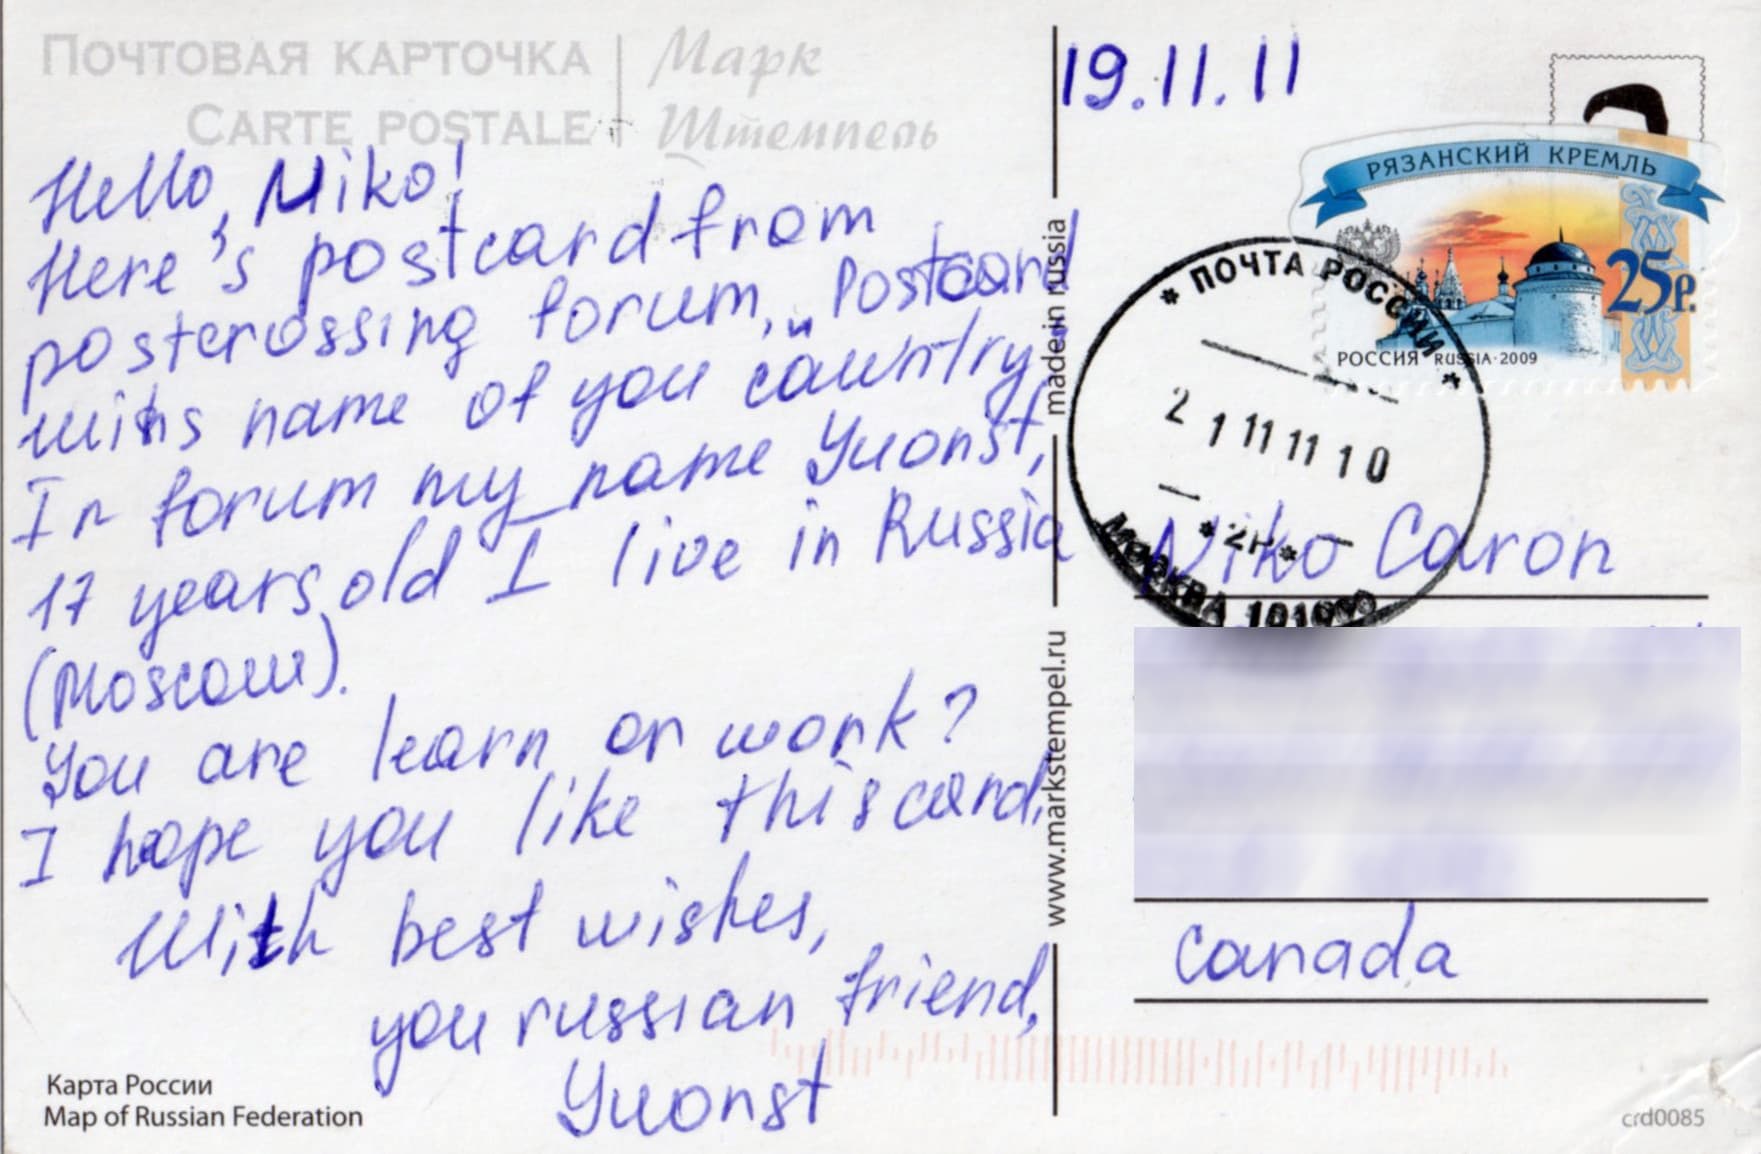 ПОЧТОВАЯ КАРТОЧКА
CARTE POSTALE
Марк
Штемпель
Hello, Niko!
Here's postcard from
postcrossing forum, „Postcard
withs name of you country"
In forum my name Yuonst,
17 years old I live in Russia
(Moscow).
You are learn or work?
I hope you like this card.
With best wishes,
you russian friend,
Yuonst
Карта России
Map of Russian Federation
made in russia
www.markstempel.ru
19.11.11
РЯЗАНСКИЙ КРЕМЛЬ
25р.
РОССИЯ RUSSIA·2009
* ПОЧТА РОССИИ *
21 11 11 10
МОСКВА
Niko Caron
Canada
crd0085